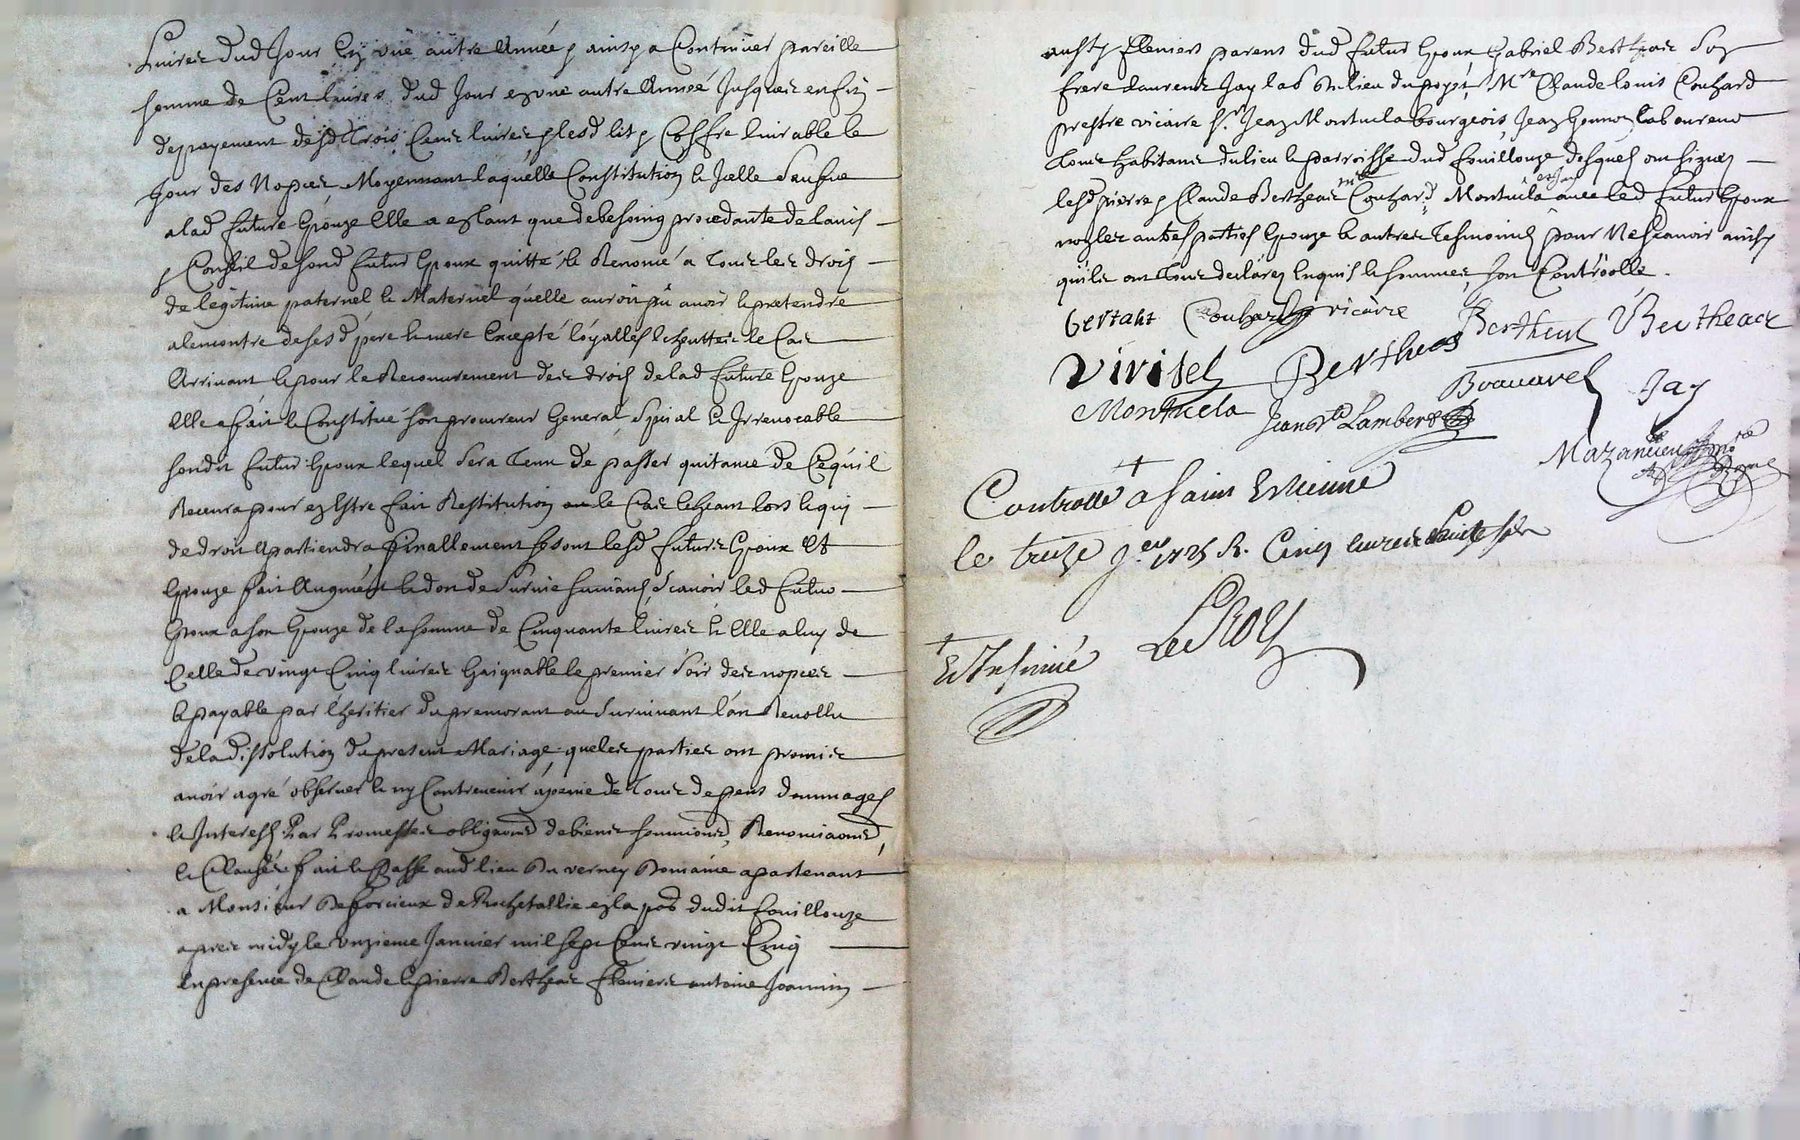 Livres dud Jour en un autre Année & ainsy a Continuer pareille
somme de Cent livres dud Jour en une autre Année Jusques enfin
depayement desd Trois Cens livres & lesd lit & Coffre livrable le
Jour des Nopces Moyennant laquelle Constitution & Icelle Saufve
alad future Epouze Elle a estant que debesoing procedante de lavis
& Conseil desond futur Epoux quitté & Renoncé a Tous les droits
de legitime paternel & Maternel quelle auroit pu avoir & pretendre
alencontre desesd pere & mere Excepté loyalles Echeuttes le Cas
Arrivant & pour le Recouvrement des droits delad future Epouze
Elle a fait & Constitué son procureur General Special & Irrevocable
sondit futur Epoux lequel sera Tenu de passer quitance de Cequil
Recevra pour en Estre fait Restitution le Cas Echeant lors & qui
de droit Apartiendra finallement se sont lesd futurs Epoux Et
Epouze fait Augment & don de survie suivans scavoir led futur
Epoux a son Epouze de la somme de Cinquante livres & Elle a luy de
Celle de vingt Cinq livres Gaignable le premier soir des nopces
& payable par lheritier du premorant au survivant lan Revollu
de la dissolution du present Mariage que les parties ont promis
avoir agré observer & ny Contrevenir a peine de Tous depens dommages
& Interests Par Promesses obligaons de biens soumions, Renonciaons,
& Clauses fait & Passé aud lieu du verney Domaine apartenant
a Monsieur Deforcieux de Rochetallie en la pad dudit fouillouze
apres midy le onzieme Janvier mil sept Cens vingt Cinq
en presence de Claude & pierre Bertheas antoine Joannin
parens dud futur Epoux Gabriel Bertheas son
frere Laurens Jay lab du lieu du Mre Claude Louis Couhard
prestre vicaire Sr Jean Montucla bourgeois, Jean laboureur
Tous habitans du lieu & parroisse dud fouillouze desquels ont signez
lesd pierre & Claude Bertheas Mre Couhard Montucla & Jay avec led futur Epoux
non les autres parties Epouze & autres Tesmoins pour ne scavoir ainsy
quils ont Tous declarez Enquis & sommez, soit Controolle.
Bertaht Couhard vicaire Bertheas Bertheas
Vivitel Bertheas Jay
Montucla Jean Lambert
Controllé a saint Estienne
le treize Jer 1725 R. Cinq livres
Et Insinué
LeRoy